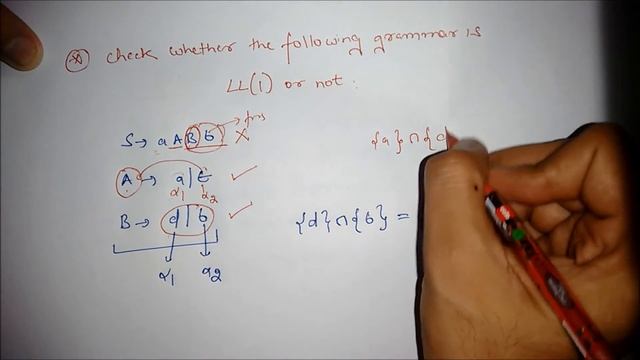 * check whether the following grammar is
LL(1) or not:
S → a A B b → fns X
{a} ∩ {d
A → a | ε ✓
α1 α2
B → d | b ✓
{d} ∩ {b} =
α1 α2